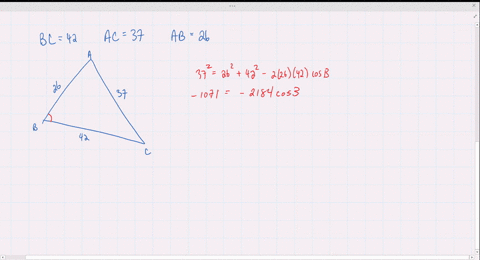 BC = 42 AC = 37 AB = 26
A
26
37
B
42
C
37² = 26² + 42² - 2(26)(42) cosB
- 1071 = - 2184 cosB